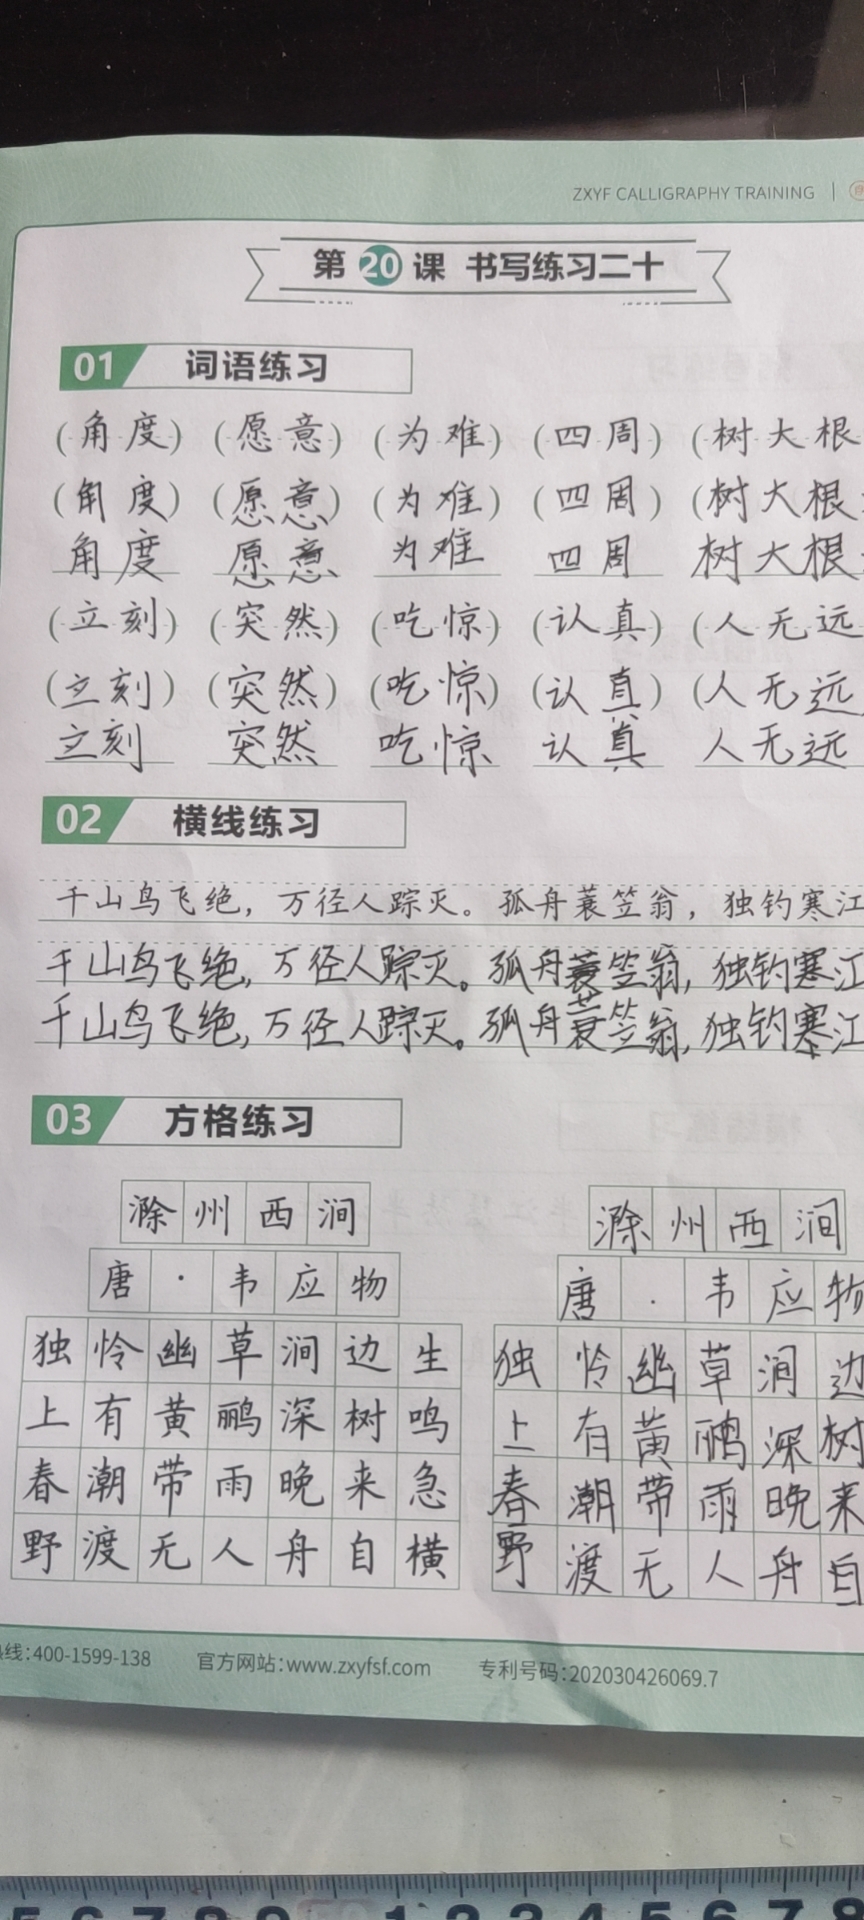 ZXYF CALLIGRAPHY TRAINING
第 20 课 书写练习二十
01 词语练习
(角度) (愿意) (为难) (四周) (树大根
(角度) (愿意) (为难) (四周) (树大根
角度 愿意 为难 四周 树大根
(立刻) (突然) (吃惊) (认真) (人无远
(立刻) (突然) (吃惊) (认真) (人无远
立刻 突然 吃惊 认真 人无远
02 横线练习
千山鸟飞绝，万径人踪灭。孤舟蓑笠翁，独钓寒江
千山鸟飞绝，万径人踪灭。孤舟蓑笠翁，独钓寒江
千山鸟飞绝，万径人踪灭。孤舟蓑笠翁，独钓寒江
03 方格练习
滁州西涧
唐·韦应物
独怜幽草涧边生
上有黄鹂深树鸣
春潮带雨晚来急
野渡无人舟自横
滁州西涧
唐·韦应物
独怜幽草涧边
上有黄鹂深树
春潮带雨晚来
野渡无人舟自
线:400-1599-138 官方网站:www.zxyfsf.com 专利号码:202030426069.7
5 6 7 8 9 1 2 3 4 5 6 7 8